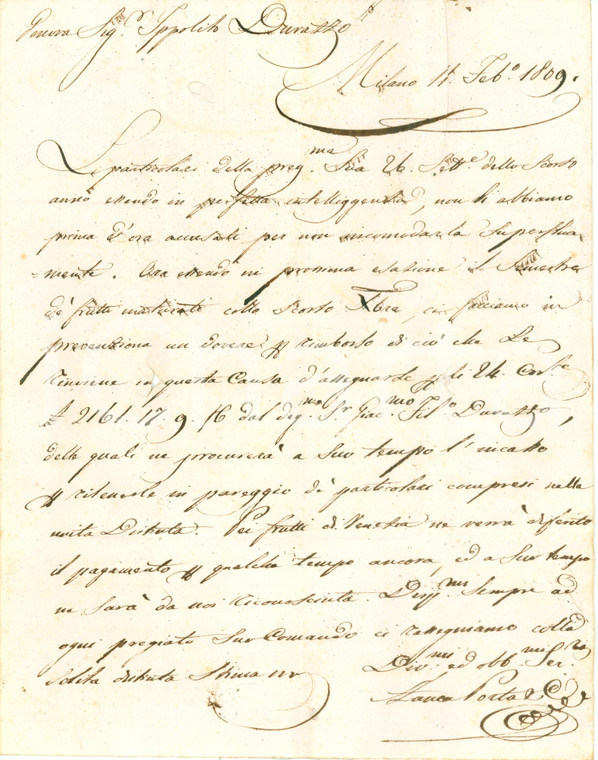 Genova Sig.r Ippolito Durazzo
Milano 11. Feb.o 1809.
Le particolari della preg.ma Sua 26. Sett.e dello Scorso
anno essendo in perfetta intelliggenza, non li abbiamo
prima d'ora accusati per non incomodarla Superflua
=mente. Ora essendo in prossima esazione il Semestre
de frutti maturati collo Scorso Xbre, ci facciamo in
prevenzione un dovere rimborso di ciò che Le
rinviene in questa Causa d'assegnarle li 24. Corr.e
£ 2161. 17. 9. f6 dal deg.mo S.r Giac.mo Fil.o Durazzo,
delle quali ne procurerà a Suo tempo l'incasso
ritenerle in pareggio de particolari compresi nella
unita Distinta. Pei frutti di Venezia ne verrà diferito
il pagamento qualche tempo ancora, ed a Suo tempo
ne Sarà da noi riconosciuta. Disp.mi Sempre ad
ogni pregiato Suo Comando ci rassegniamo colla
Solita distinta Stima
Div.mi ed obb.mi Ser.ri
Porta & C.